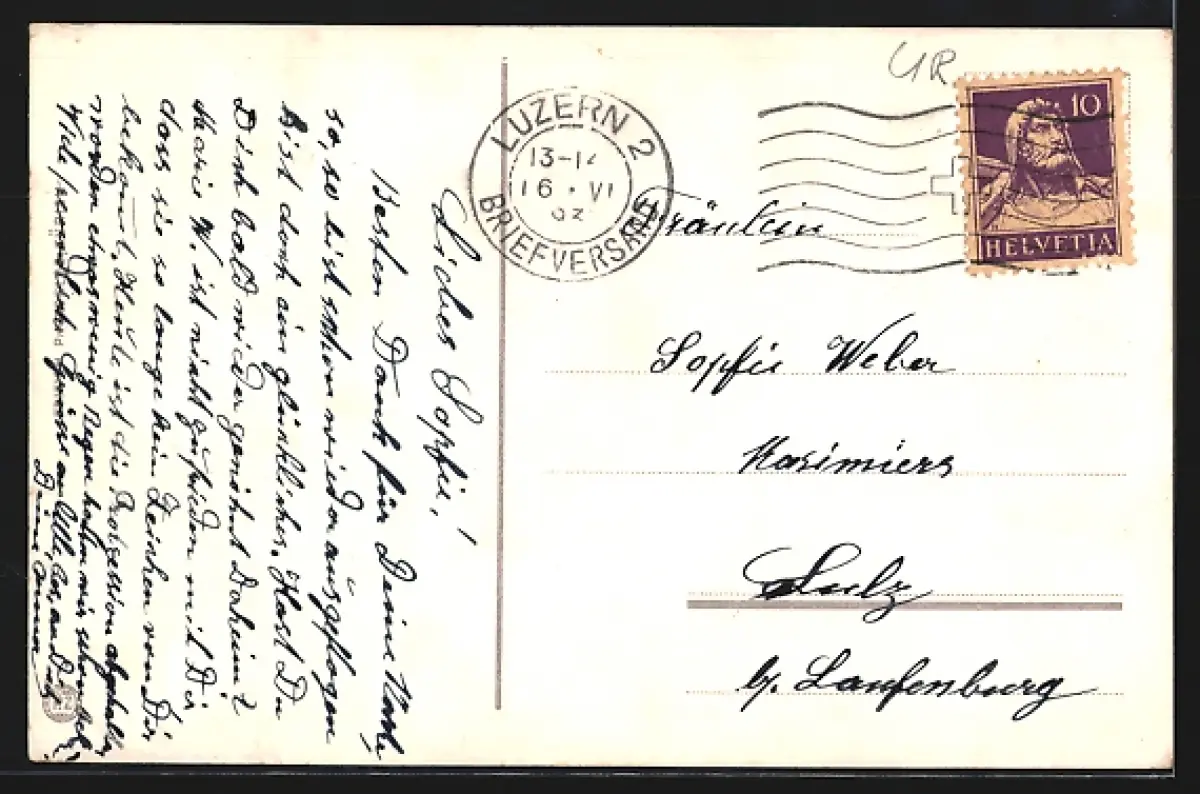 UR
LUZERN 2
13-14
16 · VI
BRIEFVERSAND
10
HELVETIA
Fräulein
Sopfie Weber
Kasimiers
Sulz
b/. Laufenburg
Liebes Sopfie!
Besten Dank für Deine
so, so bist schon wieder ausgeflogen
Bist doch ein glückliches. Hast Du
Dich bald wieder gewöhnt Daheim?
Marie W. ist nicht zufrieden mit Dir
dass sie so lange kein Zeichen von Dir
bekomt, Heute ist die Prozession abgehalten
worden etwas wenig Regen haben wir schon
Viele freundliche Grüsse an Alle, bes. an Dich
Deine Anna